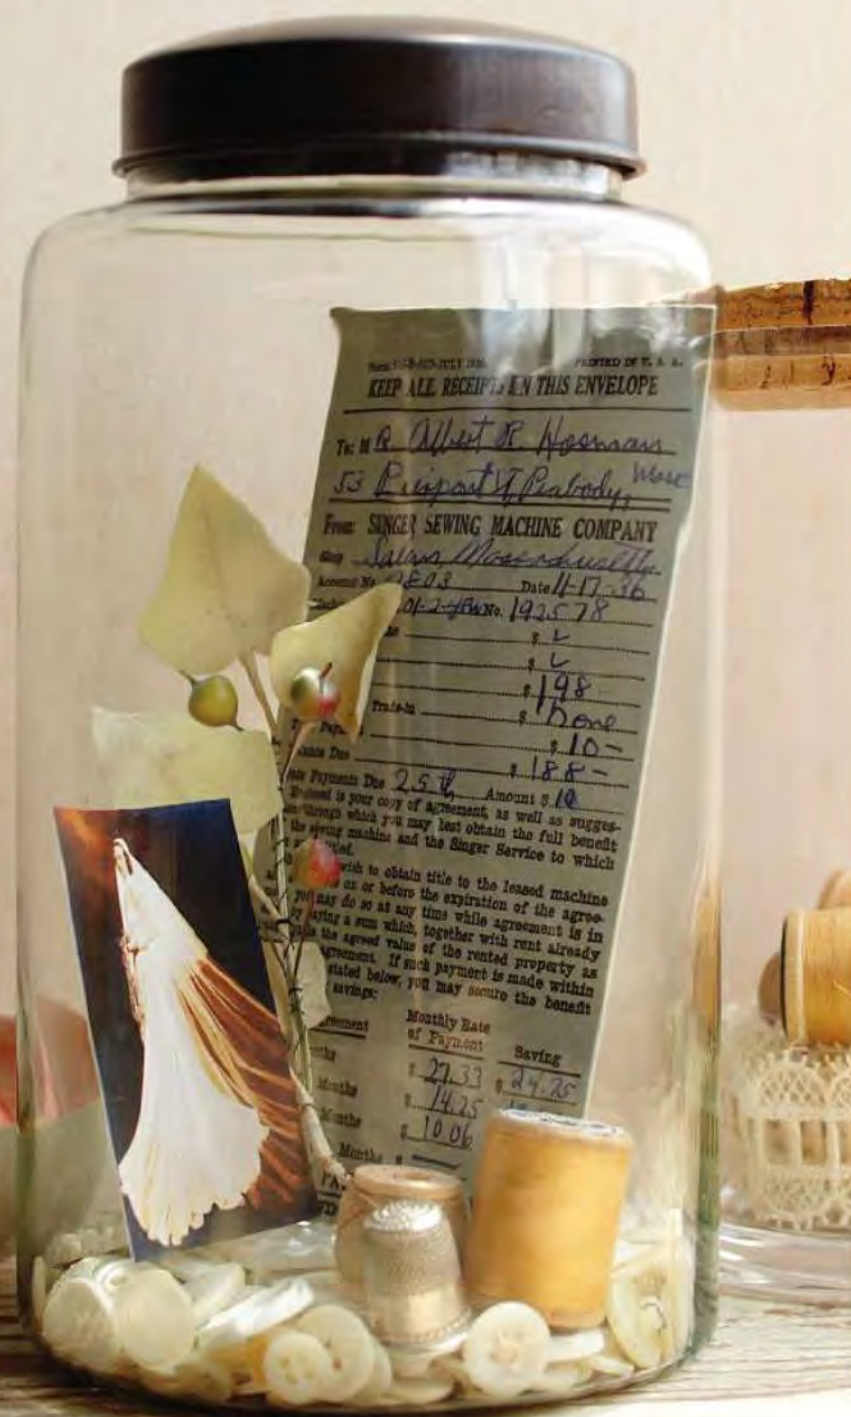 PRINTED IN U. S. A.
KEEP ALL RECEIPTS IN THIS ENVELOPE
To: M R. Albert R.
53 St Peabody, Mass
From: SINGER SEWING MACHINE COMPANY
Shop Salem, Massachusetts
Account No. 2803 Date 11-17-36
No. 192578
$
$
$ 198
Trade-in $ None
$ 10-
Due $ 188-
Payments Due 25th Amount $ 10
is your copy of agreement, as well as sugges-
through which you may best obtain the full benefit
the sewing machine and the Singer Service to which
wish to obtain title to the leased machine
on or before the expiration of the agree-
you may do so at any time while agreement is in
by paying a sum which, together with rent already
the agreed value of the rented property as
agreement. If such payment is made within
stated below, you may secure the benefit
savings:
Monthly Rate
of Payment Saving
$ 27.33 $ 24.75
Months $ 14.25
Months $ 10.06
Months $